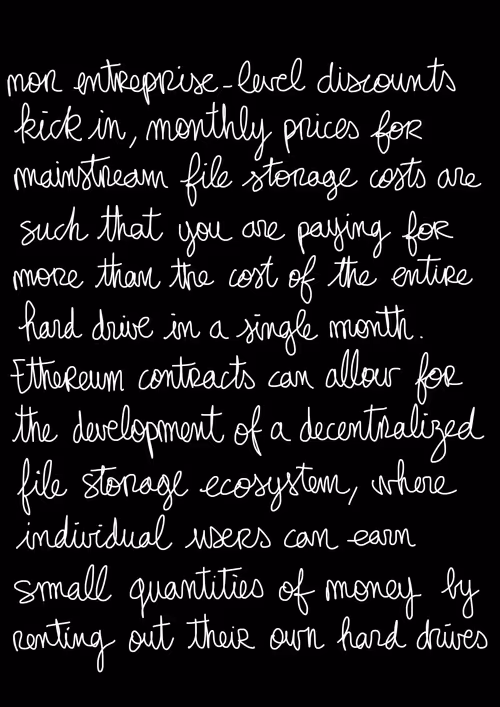 nor entreprise-level discounts
kick in, monthly prices for
mainstream file storage costs are
such that you are paying for
more than the cost of the entire
hard drive in a single month.
Ethereum contracts can allow for
the development of a decentralized
file storage ecosystem, where
individual users can earn
small quantities of money by
renting out their own hard drives